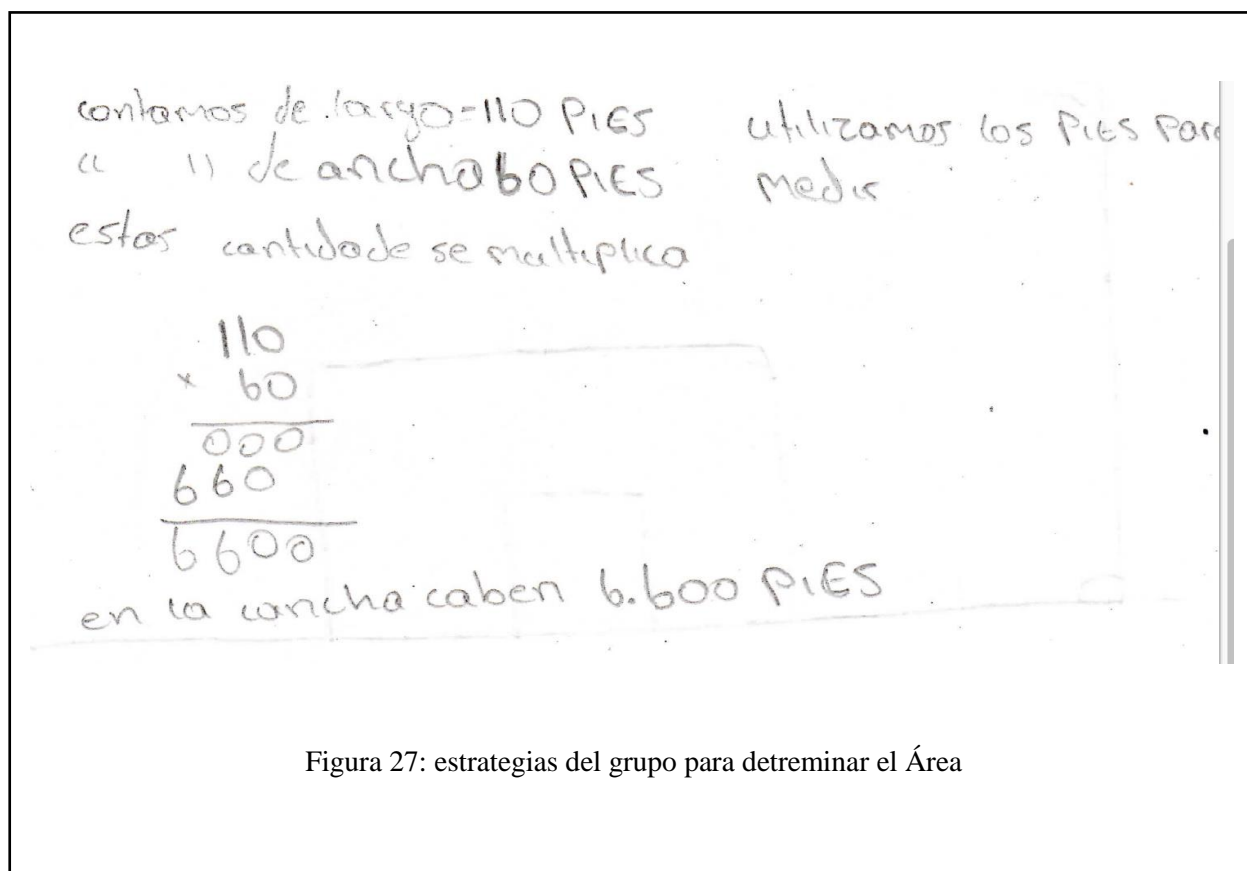 contamos de largo=110 PIES
“ ” de ancho 60 PIES
estas cantidade se multiplica
utilizamos los PIES Para
Medir
110
× 60
000
660
6600
en la cancha caben 6.600 PIES
Figura 27: estrategias del grupo para detreminar el Área